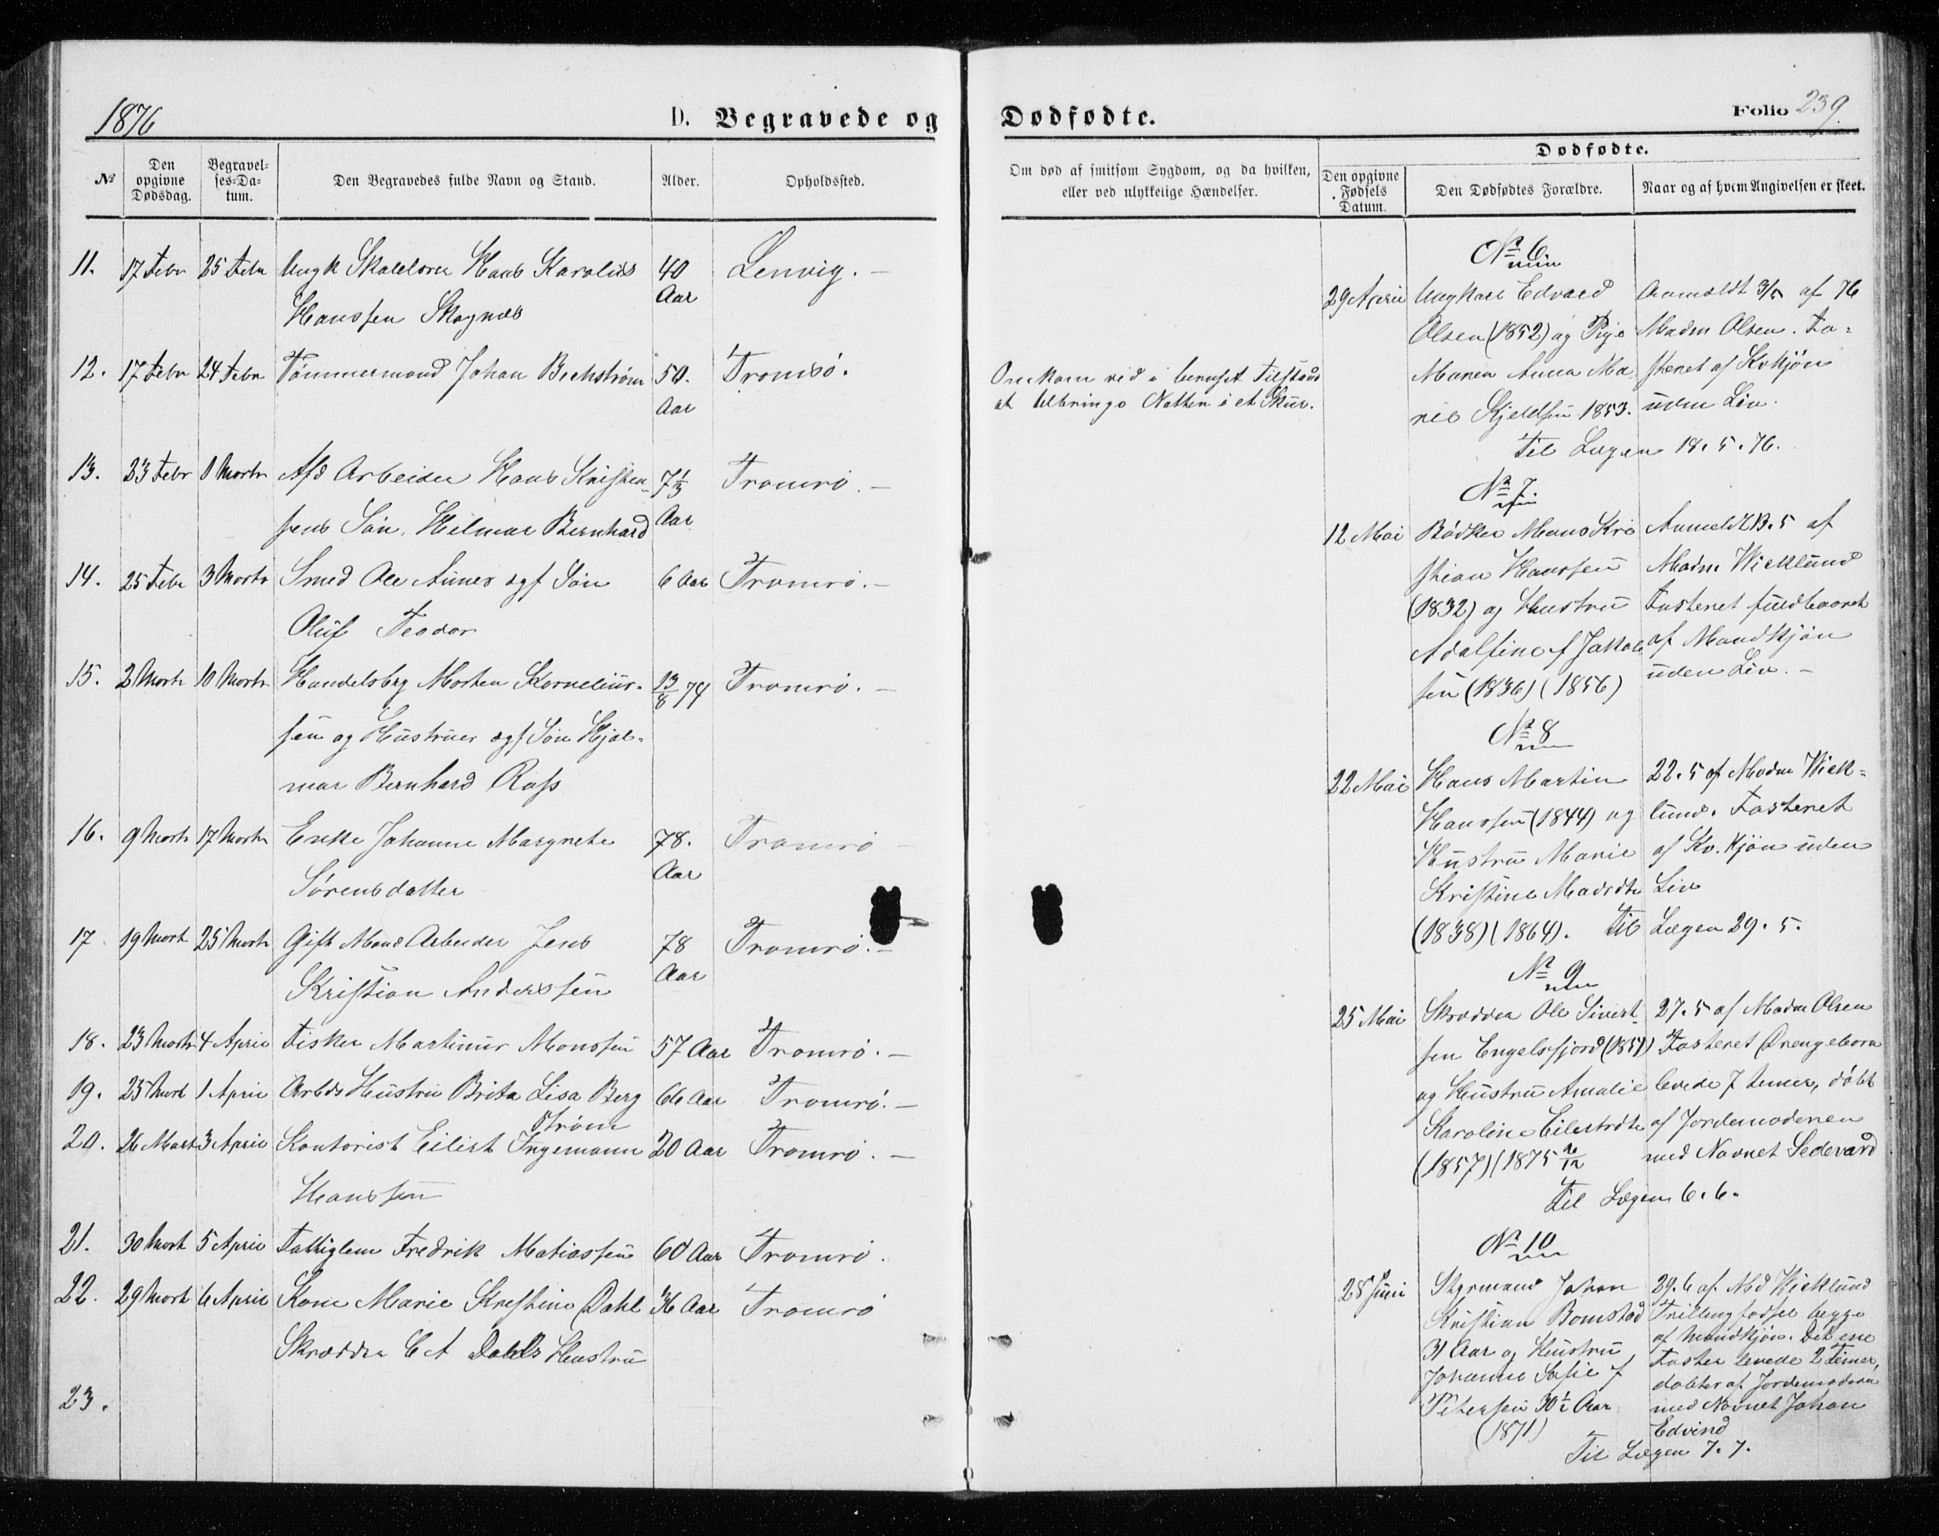 1876
D. Begravede og
Dødfødte.
Folio 239.
No
Den opgivne Dødsdag.
Begravel-ses-Da-tum.
Den Begravedes fulde Navn og Stand.
Alder.
Opholdssted.
Om død af smitsom Sygdom, og da hvilken,
eller ved ulykkelige Hændelser.
Dødfødte.
Den opgivne Fødsels Datum.
Den Dødfødtes Forældre.
Naar og af hvem Angivelsen er skeet.
11. 17 Febr 25 Febr Ungk Hans Karolius 40 Lenvig. —
Hanssen Skognæs Aar
12. 17 Febr 24 Febr Tømmermand Johan Bechstrøm 50. Tromsø.
Aar
Omkom ved i beruset Tilstand
at tilbringe Natten i et Skur.
13. 23 Febr 1 Marts Afd Arbeider Hans Kristen- 7⅓ Tromsø. —
sens Søn, Hilmar Bernhard Aar
14. 25 Febr 3 Marts Smed Ole Aunes ægf Søn 6 Aar Tromsø. —
Oluf Teodor
15. 2 Marts 10 Marts Handelsbg Morten Kornelius- 13/8 74 Tromsø. —
sen og Hustrues ægf Søn Hjal-
mar Bernhard Ross
16. 9 Marts 17 Marts Enke Johanne Margrete 78. Tromsø —
Sørensdatter Aar
17. 19 Mart 25 Marts Gift Mand Arbeider Jens 78 Tromsø. —
Kristian Anderssen Aar
18. 23 Marts 4 April Fisker Martinus Monssen 57 Aar Tromsø. —
19. 25 Mart 1 April Arbds Hustru Brita Lisa Berg 66 Aar Tromsø. —
strøm
20. 26 Mart 3 April Kontorist Eilert Ingemann 20 Aar Tromsø. —
Hanssen
21. 30 Mart 5 April Fattiglem Fredrik Matiassen 60 Aar Tromsø.
22. 29 Mart 6 April Kone Marie Kristine Dahl 36 Aar Tromsø
Skrædder C A Dahls Hustru
23.
No 6
29 April Ungkarl Edvard Anmeldt 3/5 af 76
Olsen (1852) og Pige Madm Olsen. Fo-
Maren Anna Ma steret af Kvkjøn
rie Kjeldsen 1853. uden Liv.
Til Lægen 18. 5. 76.
No 7.
12 Mai Bødker Mons Kri Anmeldt 13. 5 af
stian Hanssen Madm Wicklund
(1832) og Hustru Fosteret fuldbaaret
Adolfine f Jakob af Mandkjøn
sen (1836) (1856) uden Liv. —
No 8
22 Mai Hans Martin 22. 5 af Madm Wick-
Hanssen (1844) og lund. Fosteret
Hustru Marie af Kv. kjøn uden
Kristine Madsdtr Liv
(1838) (1864). Til Lægen 29. 5.
No 9
25 Mai Skrædder Ole Sivert- 27. 5 af Madm Olsen
sen Engelsfjord (1851) Fosteret Drengebarn
og Hustru Amalie levede 7 timer, døbt
Karoline Eilertsdtr af Jordemoderen
(1857) (1875 2/12 med Navnet Sedevard
Til Lægen 6. 6.
No 10
28 Juni Styrmand Johan 29. 6 af Md Wicklund
Kristian Bomstad Trillingfødsel begge
31 Aar og Hustru af Mandkjøn. Det ene
Johanne Sofie f Foster levede 2 Timer,
Petersen 30½ Aar døbt af Jordemoderen
(1871) med Navnet Johan
Edvind
Til Lægen 7. 7.